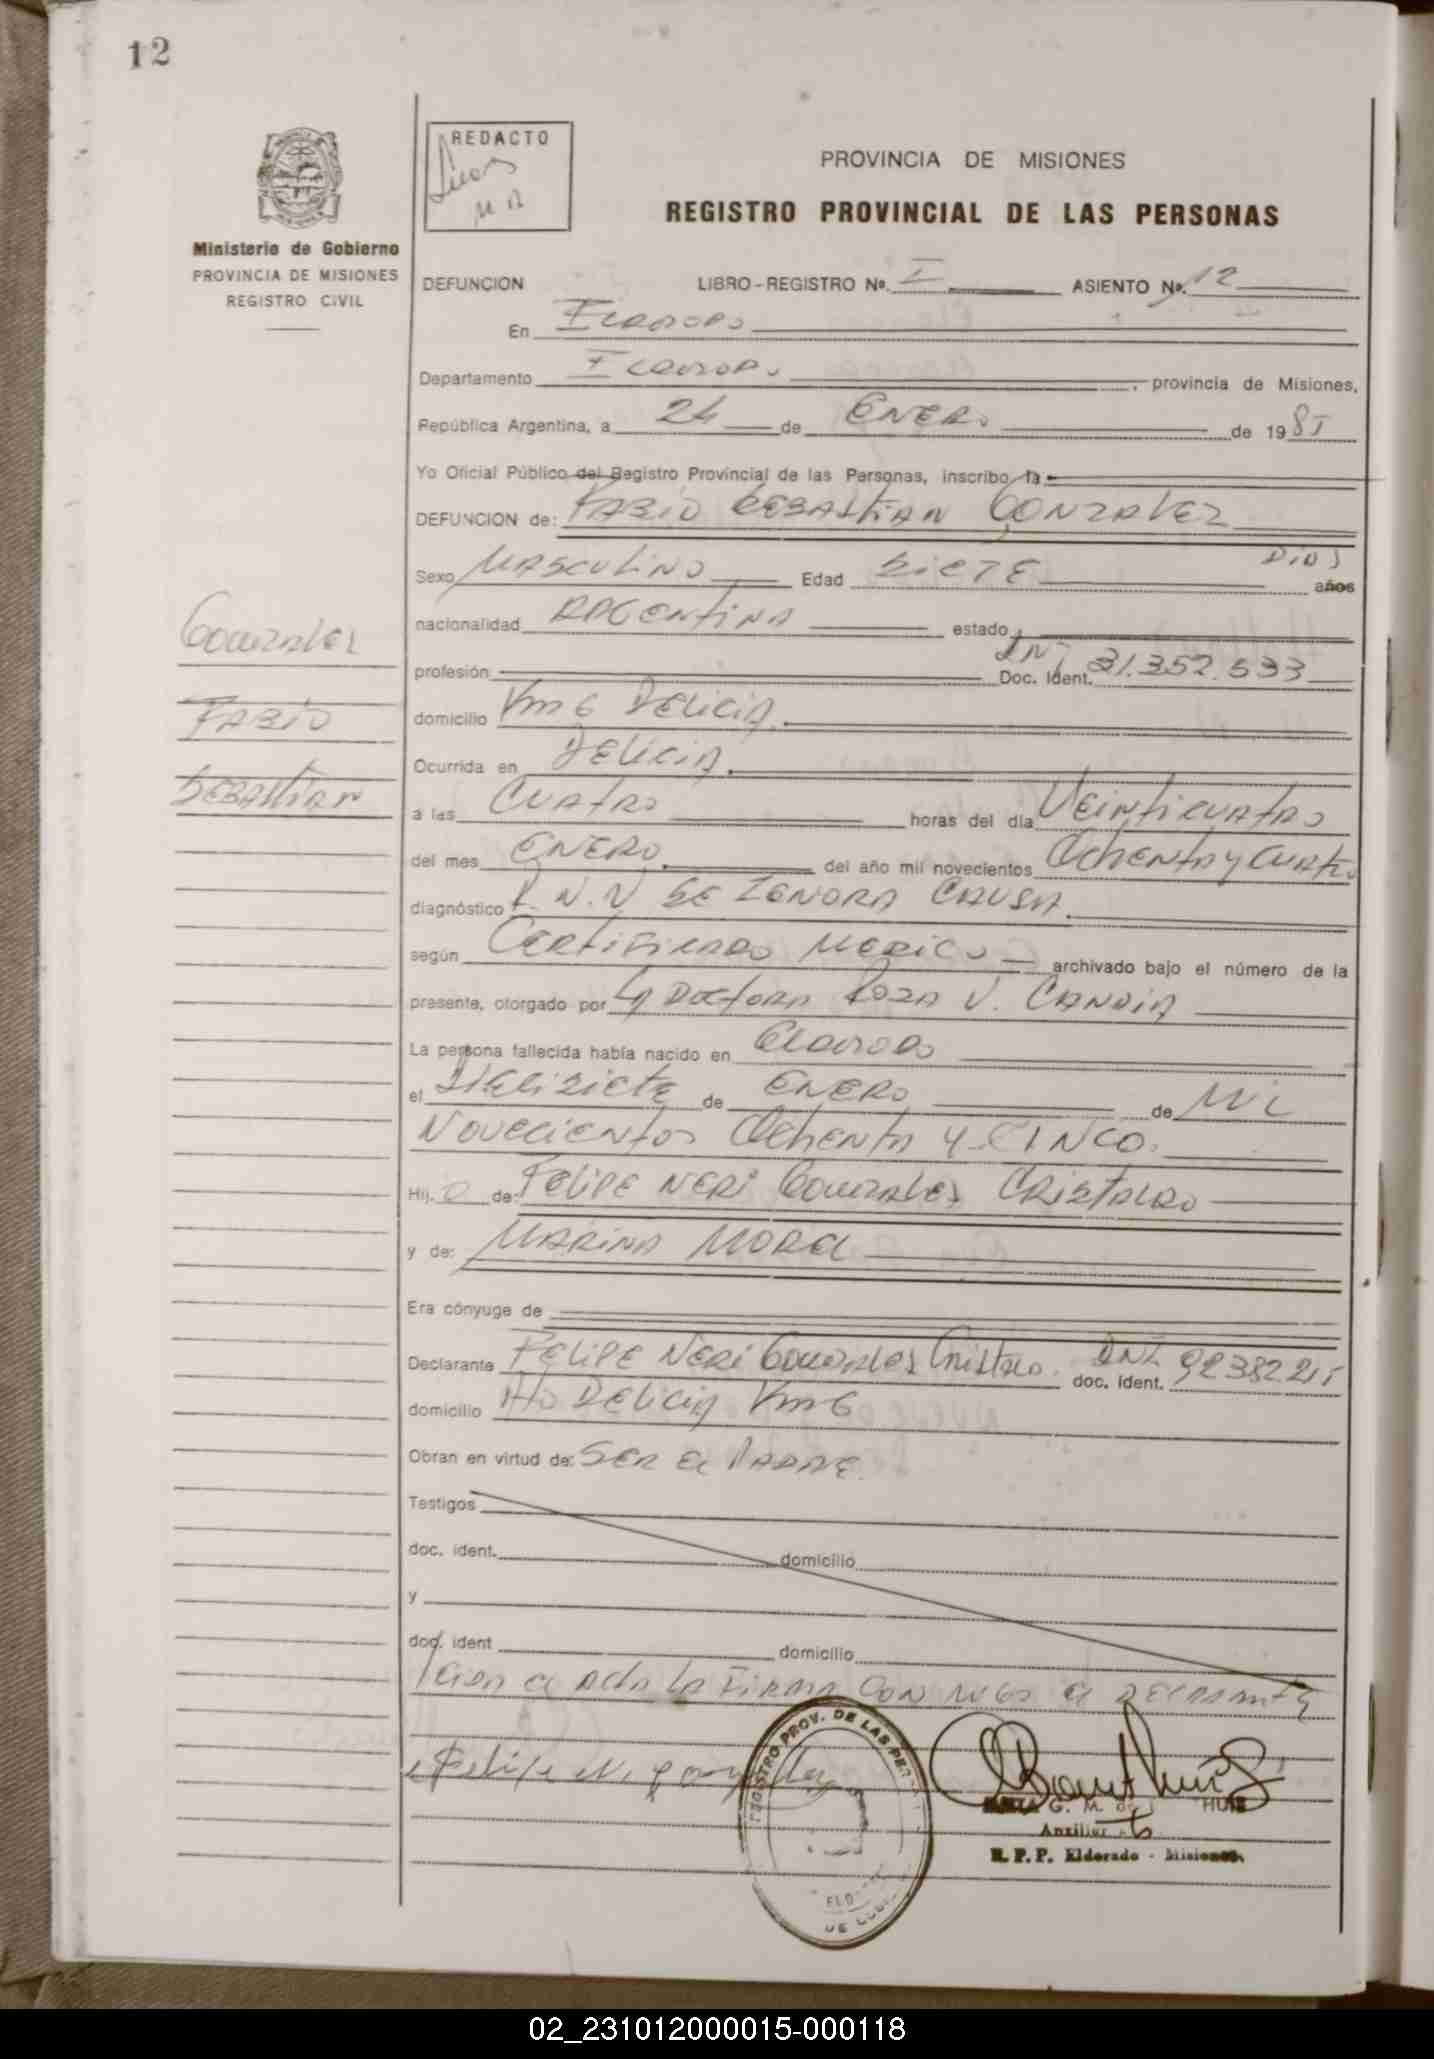 12
REDACTO
PROVINCIA DE MISIONES
REGISTRO PROVINCIAL DE LAS PERSONAS
Ministerio de Gobierno
PROVINCIA DE MISIONES
REGISTRO CIVIL
DEFUNCION LIBRO-REGISTRO Nº. I ASIENTO Nº. 12
En ELDORADO
Departamento ELDORADO, provincia de Misiones,
República Argentina, a 24 de ENERO de 1985
Yo Oficial Público del Registro Provincial de las Personas, inscribo la
DEFUNCION de: FABIO SEBASTIAN GONZALEZ
Sexo MASCULINO Edad SIETE DIAS años
nacionalidad ARGENTINA estado
profesión Doc. Ident. DNI 31.352.533
domicilio Km 6 DELICIA
Ocurrida en DELICIA
a las CUATRO horas del día VEINTICUATRO
del mes ENERO del año mil novecientos OCHENTA Y CUATRO
diagnóstico R.N.V SE IGNORA CAUSA
según CERTIFICADO MEDICO archivado bajo el número de la
presente, otorgado por LA DOCTORA ROSA V. CANDIA
La persona fallecida había nacido en ELDORADO
el DIECISIETE de ENERO de MIL
NOVECIENTOS OCHENTA Y CINCO.
Hij O de: FELIPE NERI GONZALES CRISTALDO
y de: MARINA MOREL
Era cónyuge de
Declarante FELIPE NERI GONZALES CRISTALDO. doc. ident. DNI 92382215
domicilio DELICIA Km 6
Obran en virtud de: SER EL PADRE.
Testigos
doc. ident. domicilio
y
doc. ident domicilio
LEIDA EL ACTA LA FIRMA CON MIGO EL DECLARANTE
Felipe N. gonzalez
REGISTRO PROV. DE LAS PER
G. M. de
Auxiliar
R. P. P. Eldorado - Misiones
GONZALES
FABIO
SEBASTIAN
02_231012000015-000118